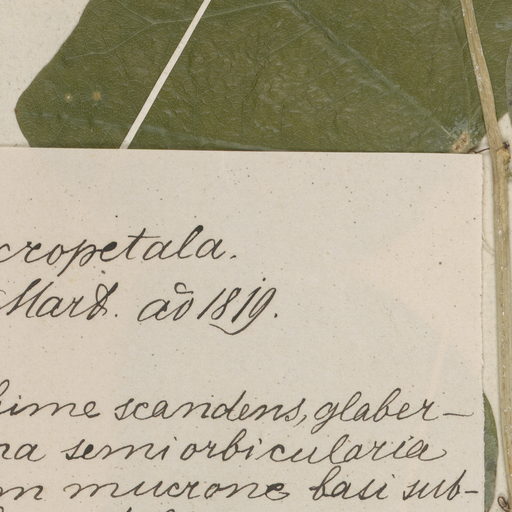 cropetala.
Mart. aō 1819.
hime scandens, glaber-
na semiorbicularia
m mucrone basi sub-